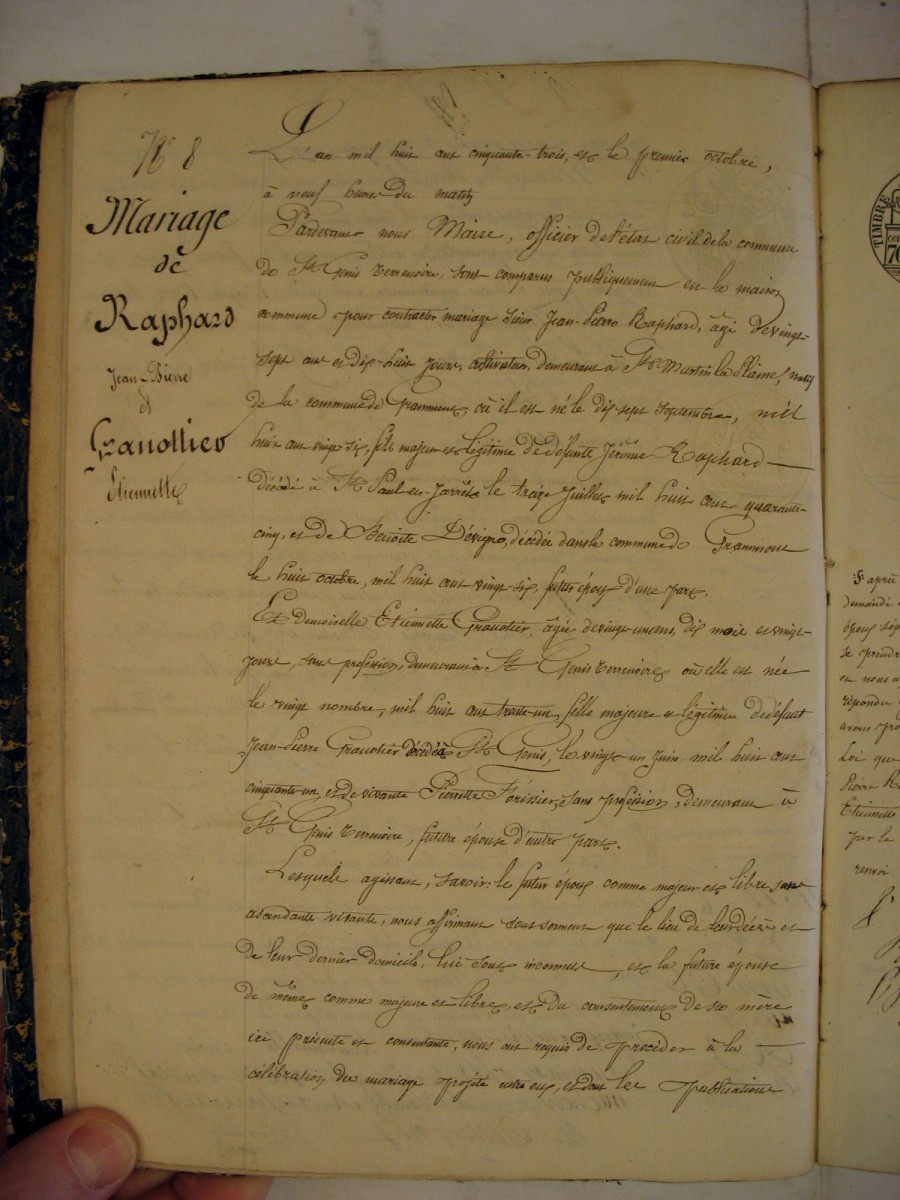 N° 8
Mariage
de
Raphard
Jean-Pierre
et
Granottier
Etiennette
L'an mil huit cent cinquante-trois, et le premier octobre,
à neuf heures du matin
Pardevant nous Maire, officier de l'état civil de la commune
de St Genis terrenoire, sont comparus publiquement en la maison
commune pour contracter mariage sieur Jean-Pierre Raphard, âgé de vingt-
sept ans et dix-huit jours, cultivateur, demeurant à St Martin la Plaine, natif
de la commune de Grammont, où il est né le dix sept septembre, mil
huit cent vingt six, fils majeur et légitime de défunts Jérôme Raphard
décédé à St Paul-en-Jarrêt le treize Juillet mil huit cent quarante-
cinq, et de Benoite Dévigne, décédée dans la commune de Grammont
le huit octobre, mil huit cent vingt-six, futur époux d'une part.
Et demoiselle Etiennette Granotier, âgée de vingt-un ans, dix mois et vingt-
jours, sans profession, demeurant à St Genis terrenoire, où elle est née
le vingt nombre, mil huit cent trente-un, fille majeure et légitime de défunt
Jean-Pierre Granotier décédé à St Genis, le vingt-un Juin mil huit cent
cinquante-un, et de vivante Pierrette Forissier, sans profession, demeurant à
St Genis terrenoire, future épouse d'autre part.
Lesquels agissant, savoir: le futur époux comme majeur et libre sans
ascendants vivants, nous affirmant sous serment que le lieu de leur décès et
de leur dernier domicile, lui sont inconnus, et la future épouse
de même comme majeure et libre, et du consentement de sa mère
ici présente et consentante, nous ont requis de procéder à la
célébration du mariage projeté entre eux, et dont les publications
TIMBRE
70
après
demandé
époux
se prendre
et nous
répondu
avons
Loi que
Pierre
Etiennette
par le
renvoi